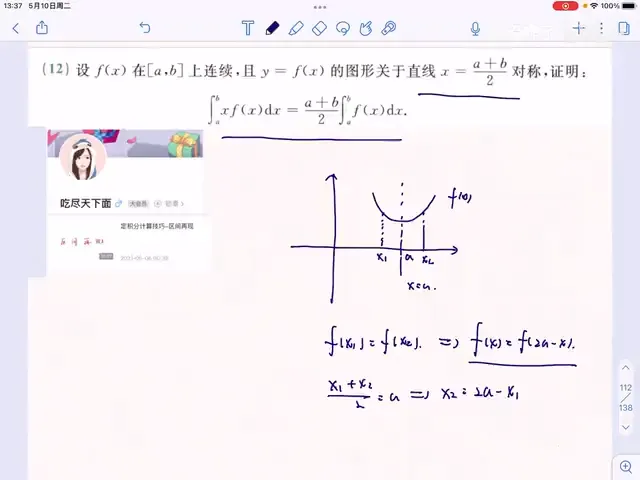 13:37 5月10日周二
100%
(12) 设 f(x) 在[a,b] 上连续,且 y = f(x) 的图形关于直线 x = \frac{a+b}{2} 对称,证明:
\int_a^b xf(x)dx = \frac{a+b}{2}\int_a^b f(x)dx.
吃尽天下面
大会员
定积分计算技巧-区间再现
f(x)
x1 a x2
x=a.
f(x1) = f(x2). ⇒ f(x) = f(2a-x).
\frac{x1+x2}{2} = a ⇒ x2 = 2a - x1
112/138